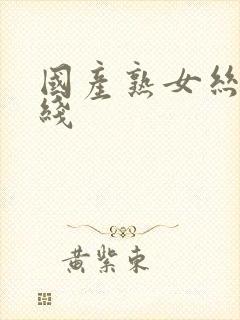 國產熟女絲
綫
黃紫東